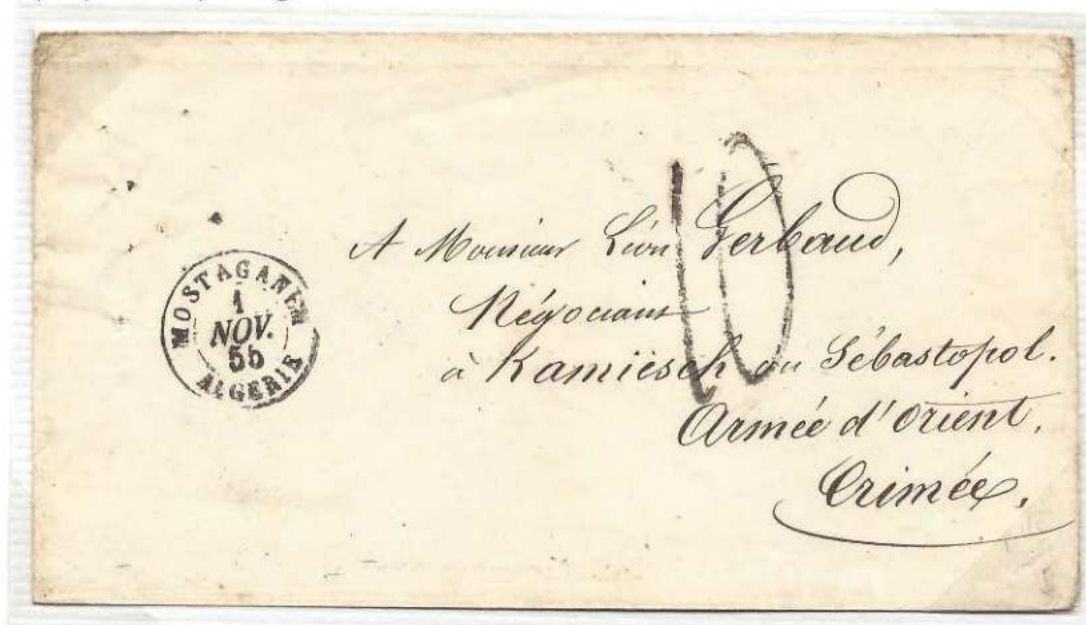 MOSTAGANEM
1
NOV.
55
ALGERIE
10
A Monsieur Léon Gerbaud,
Négociant
à Kamiesch ou Sébastopol.
Armée d'Orient,
Crimée,